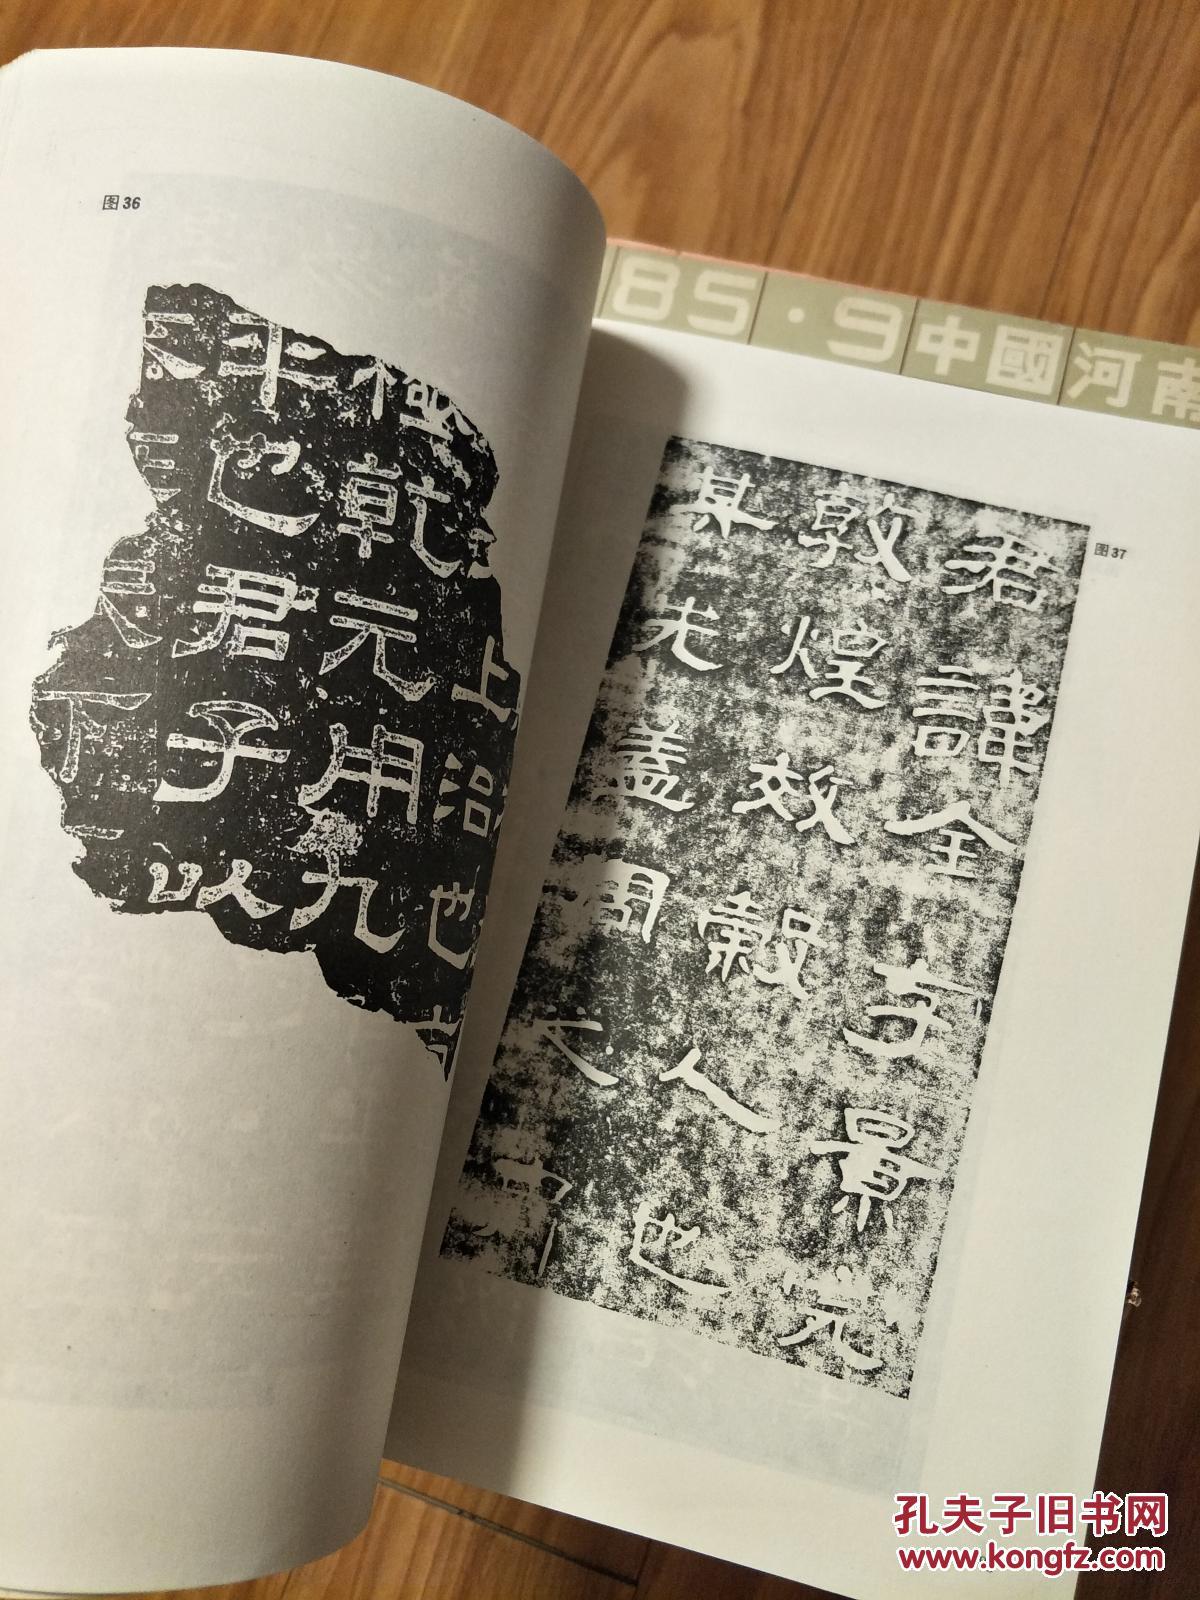 图36
上治也
極乾元用九
平也君子以
下
85·9中國河南
图37
君諱全字景完
敦煌效穀人也
其先蓋周之
孔夫子旧书网
www.kongfz.com